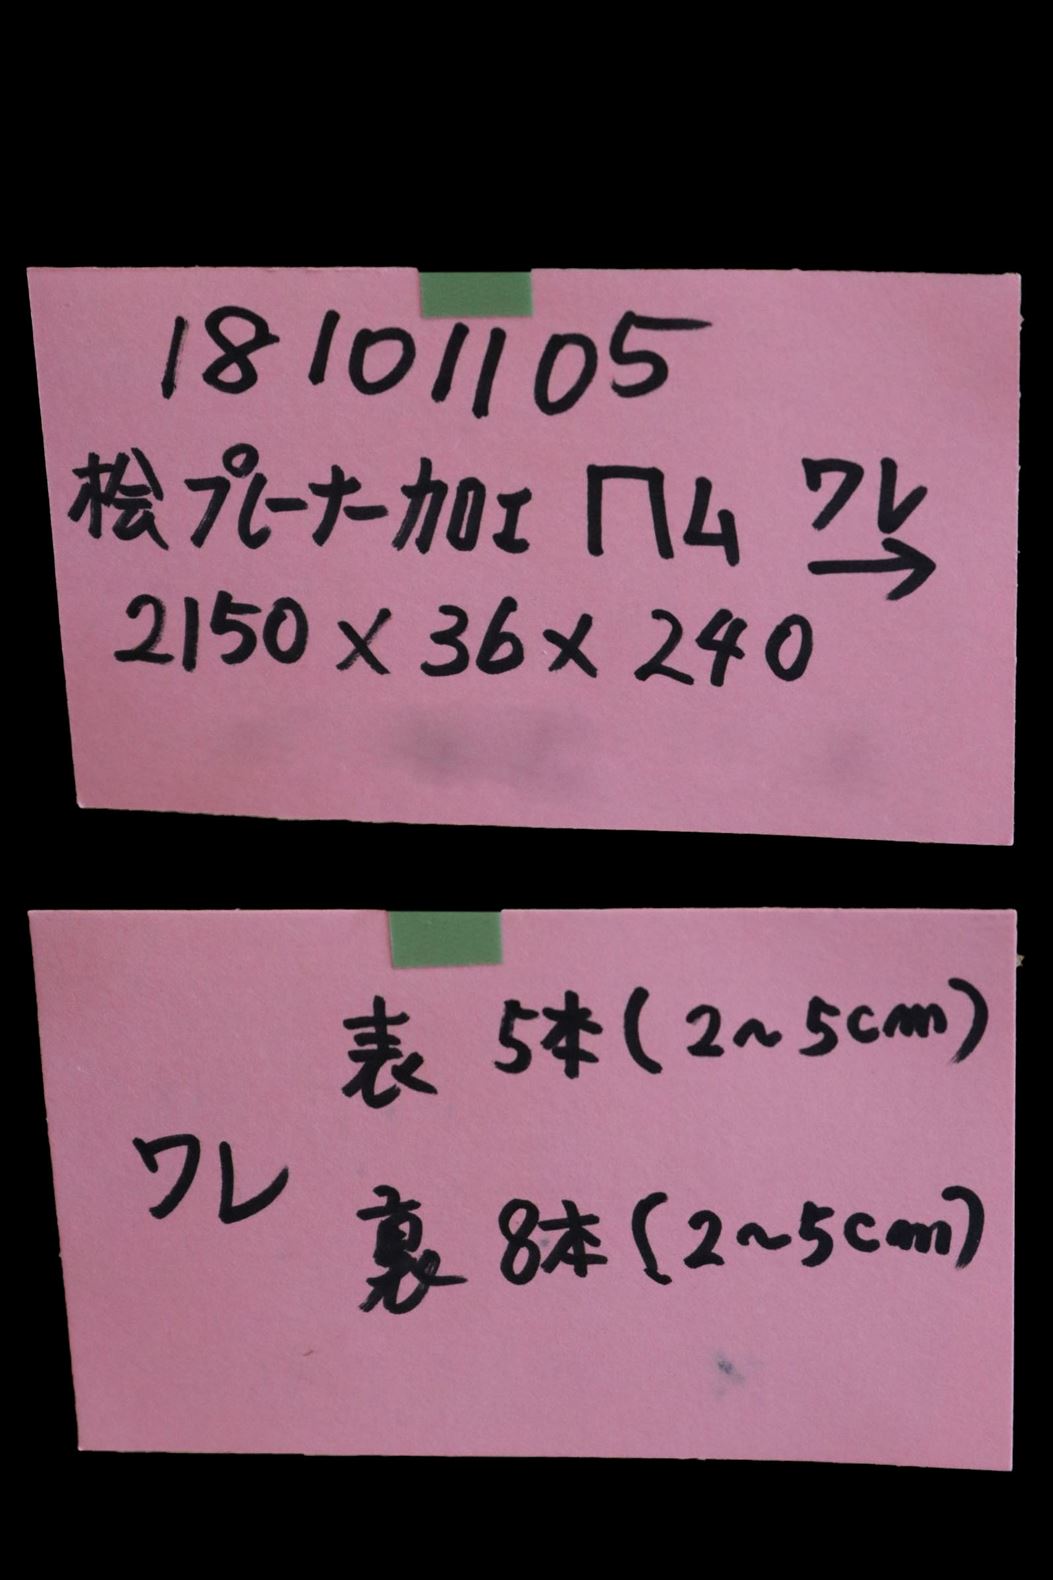 18101105
桧プレーナー加工 ワレ
→
2150×36×240
表 5本(2～5cm)
ワレ
裏 8本(2～5cm)